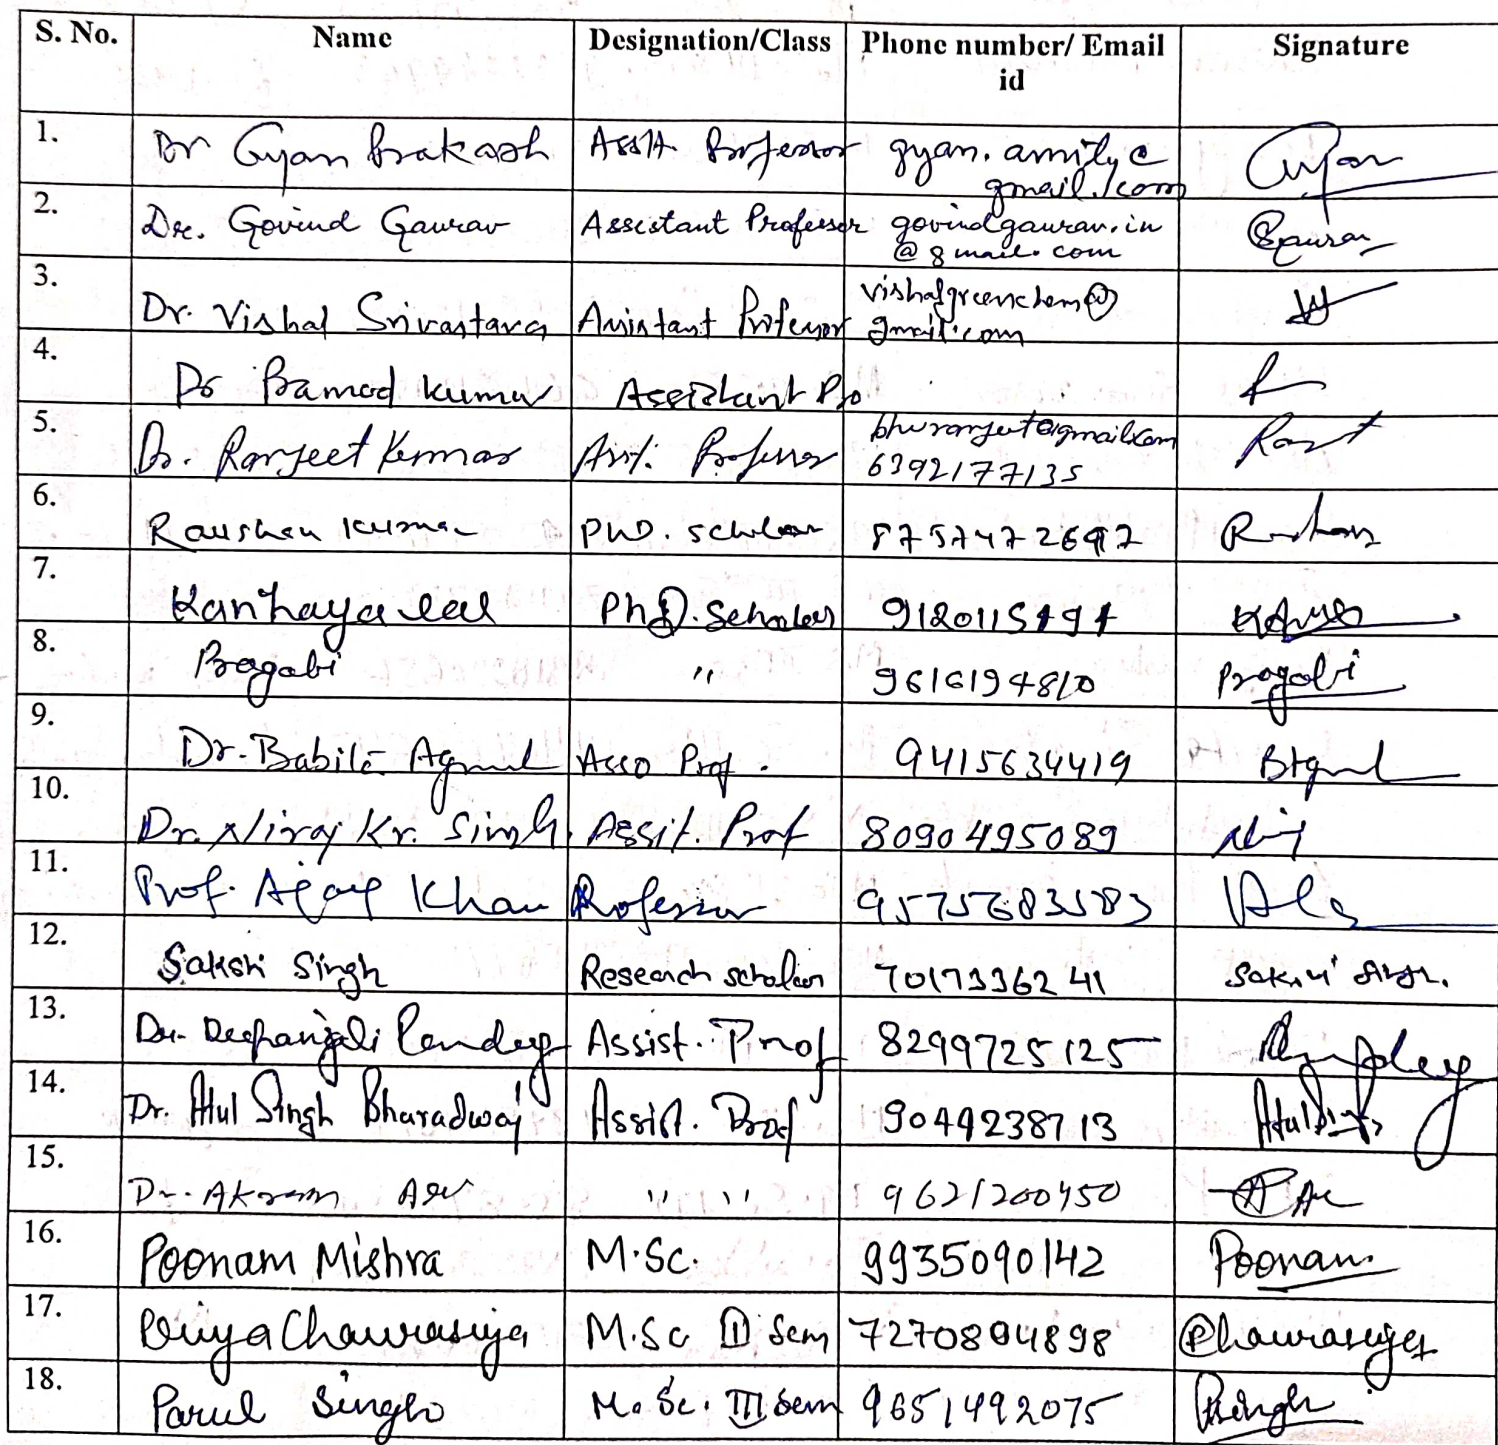 S. No. Name Designation/Class Phone number/ Email id Signature
1. Dr Gyan Prakash Asstt. Professor gyan.amity@
gmail.com Gyan
2. Dr. Govind Gaurav Assistant Professor govindgaurav.in
@gmail.com Gaurav
3. Dr. Vishal Srivastava Assistant Professor vishalgreenchem@
gmail.com
4. Dr Pramod Kumar Assistant Pro
5. Dr. Ranjeet Kumar Asst. Professor bhuranjeet@gmail.com
6392177135
6. Raushan Kumar PhD. Scholar 8757472697
7. Kanhaya Lal PhD. Scholar
8. Pragati " 9616194810 Pragati
9. Dr. Babita Agrawal Asso Prof. 9415634419
10. Dr. Niraj Kr. Singh. Assit. Prof 8090495089 Niraj
11. Prof. Khan Professor 9575683583
12. Sakshi Singh Research scholar 7017336241 Sakshi Singh.
13. Dr. Deepanjali Pandey Assist. Prof 8299725125
14. Dr. Atul Singh Bharadwaj Assist. Prof
15. Dr. Akram Ali " " 9621200450
16. Poonam Mishra M.Sc. 9935090142 Poonam
17. Priya Chaurasiya M.Sc III Sem 7270804898 PChaurasiya
18. Parul Singh M.Sc. III Sem 9651492075 PSingh